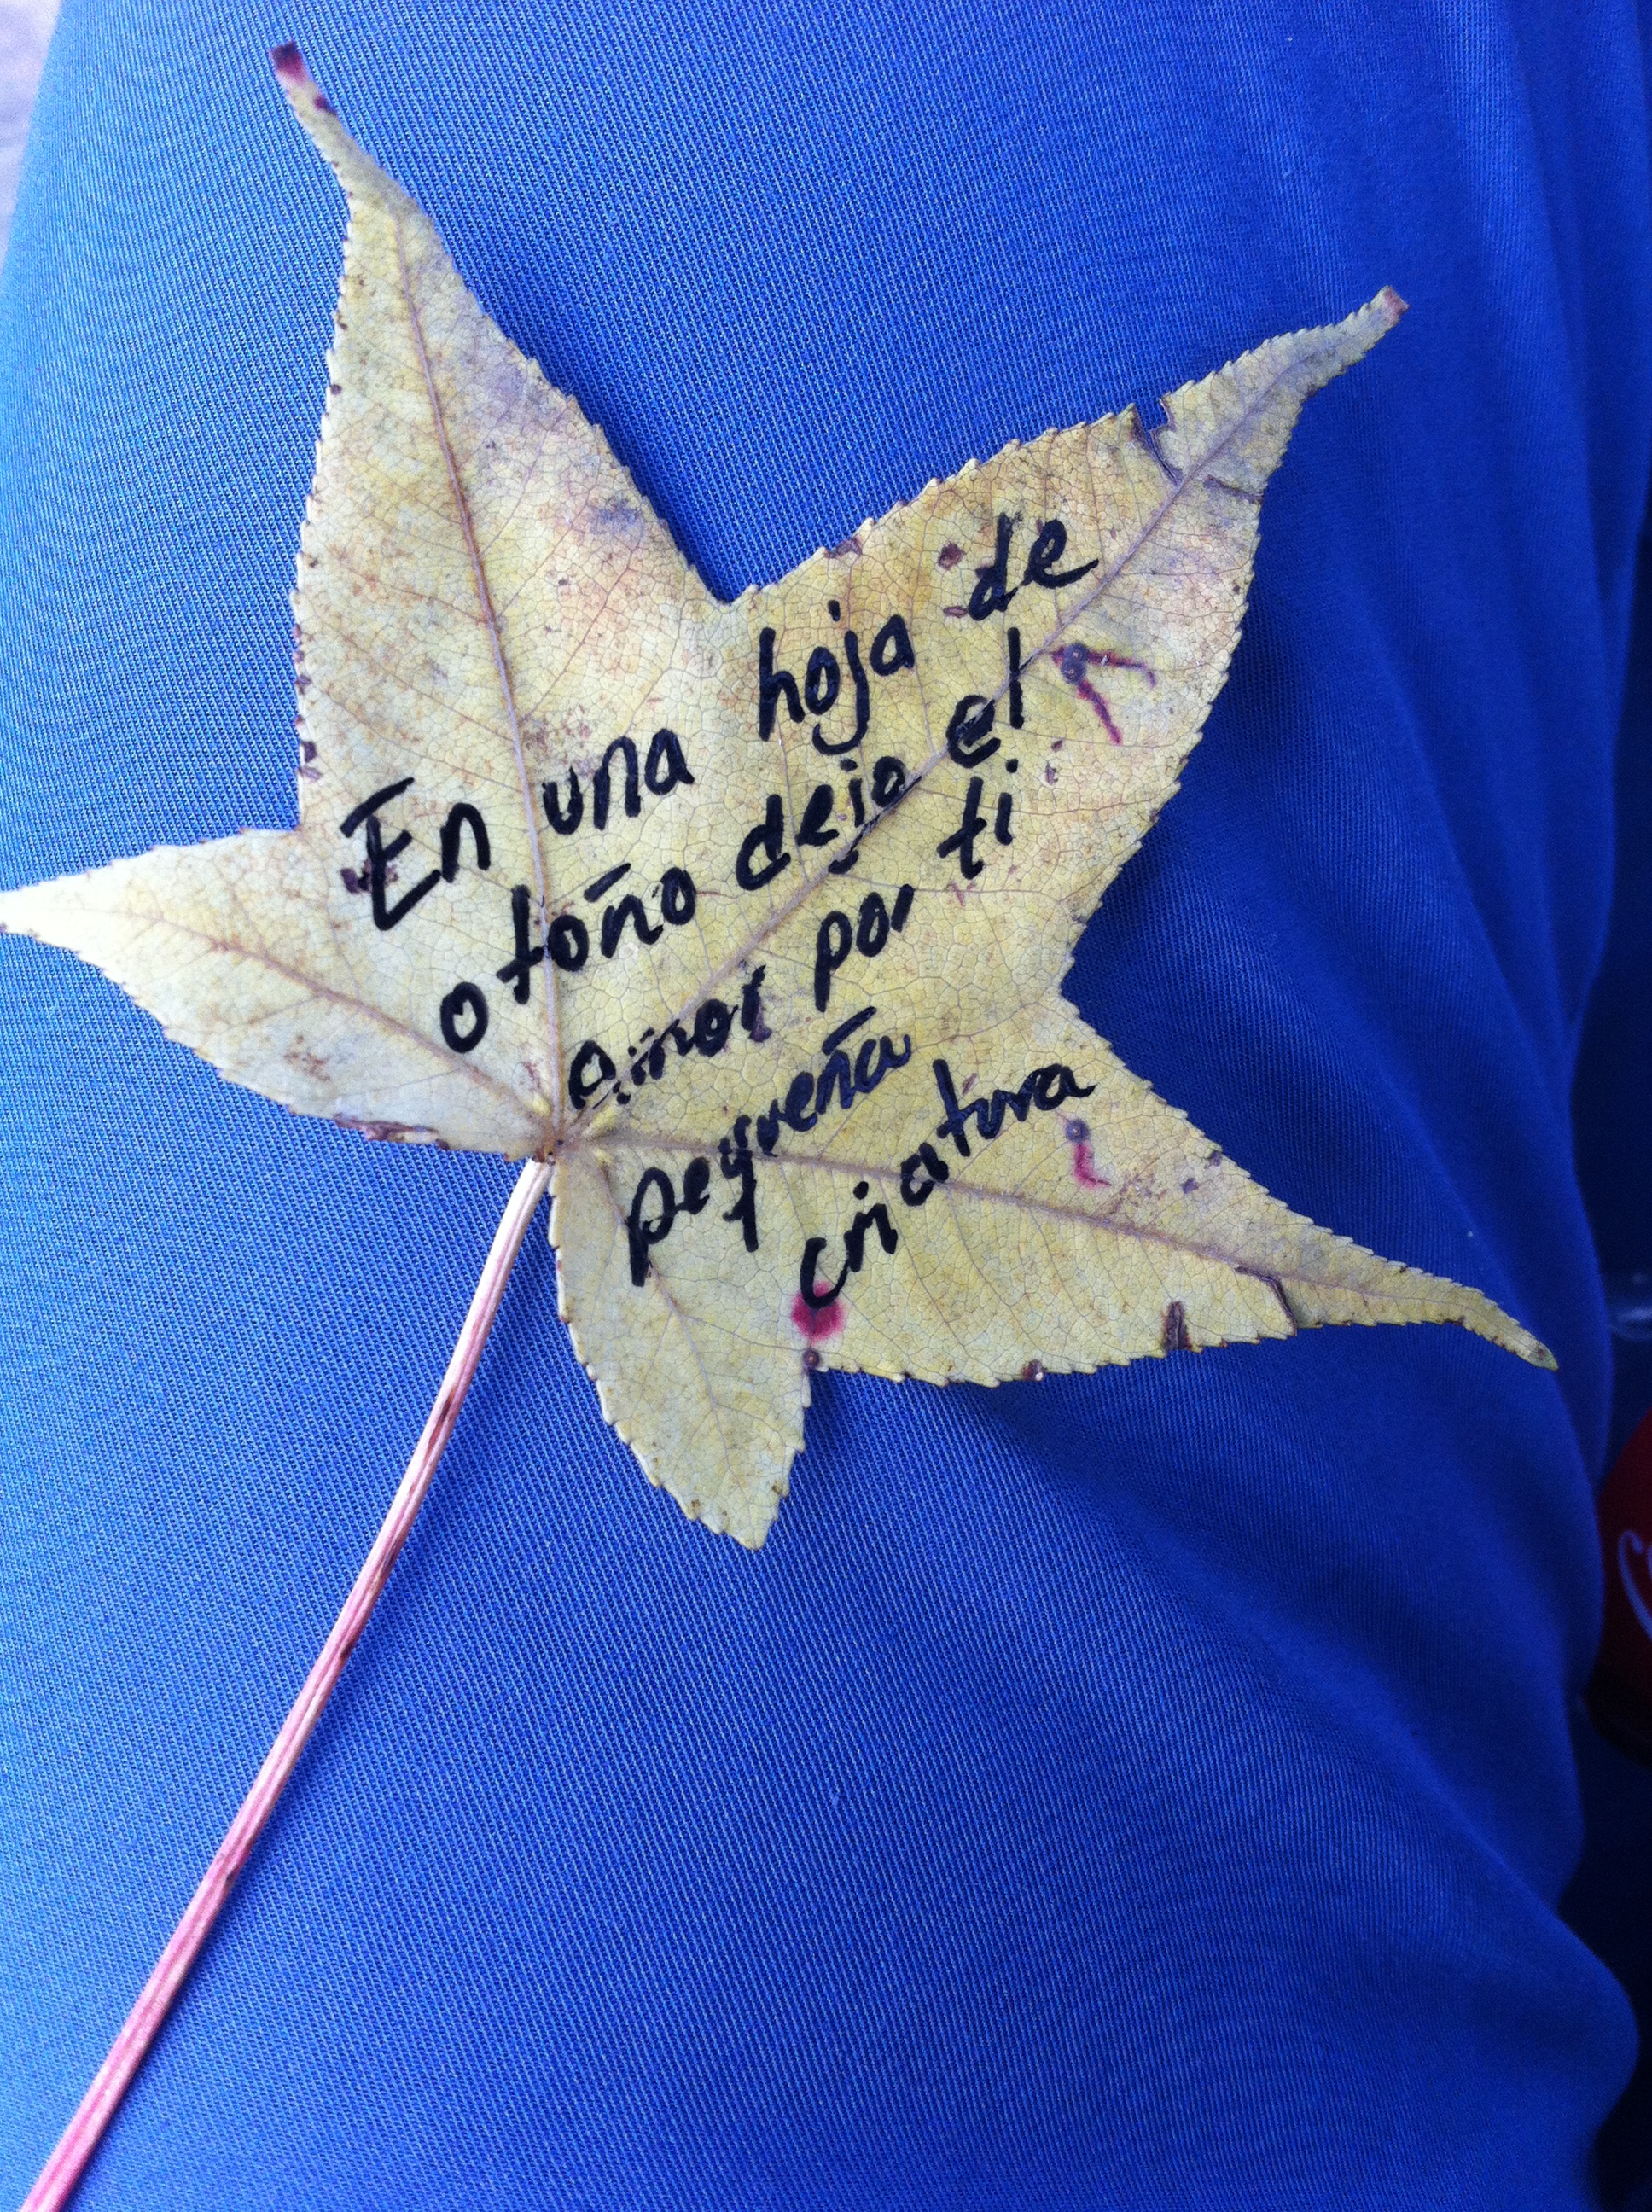 En una hoja de
otoño dejo el
amor por ti
pequeña
criatura